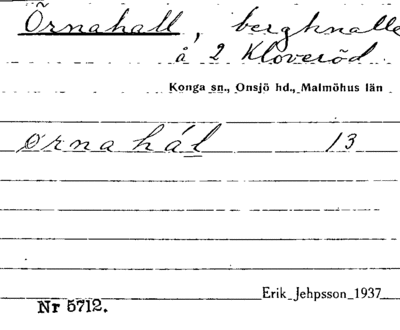 Örnahall, bergknalle
å 2 Kloveröd
Konga sn., Onsjö hd., Malmöhus län
ørnahál 13
Erik Jehpsson 1937
Nr 5712.